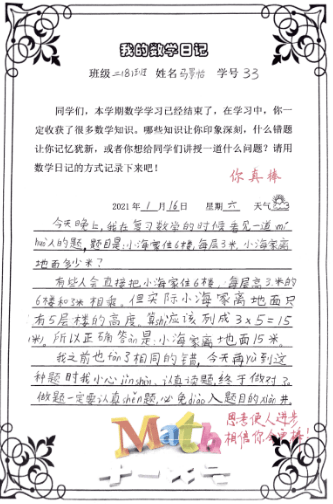 我的数学日记
班级 二(8)班 姓名 马 怡 学号 33
同学们,本学期数学学习已经结束了,在学习中,你一
定收获了很多数学知识。哪些知识让你印象深刻,什么错题
让你记忆犹新,或者你想给同学们讲授一道什么问题?请用
数学日记的方式记录下来吧!
你真棒
2021年 1 月 16 日 星期 六 天气
今天晚上,我在复习数学的时候看见一道mí
人的题,题目是:小海家住6楼,每层3米,小海家离
地面多少米?
有些人会直接把小海家住6楼,每层高3米的
6楼和3米相乘。但实际小海家离地面只
有5层楼的高度,算shì应该列成3×5=15
(米),所以正确答案是:小海家离地面15米。
我之前也fàn了相同的错,今天再 到这
种题时我小心jǐnshèn,认真读题,终于做对了。
做题一定要认真shěn题,必免diào入题目的xiàn井。
思考使人进步
相信你会更棒!
Math